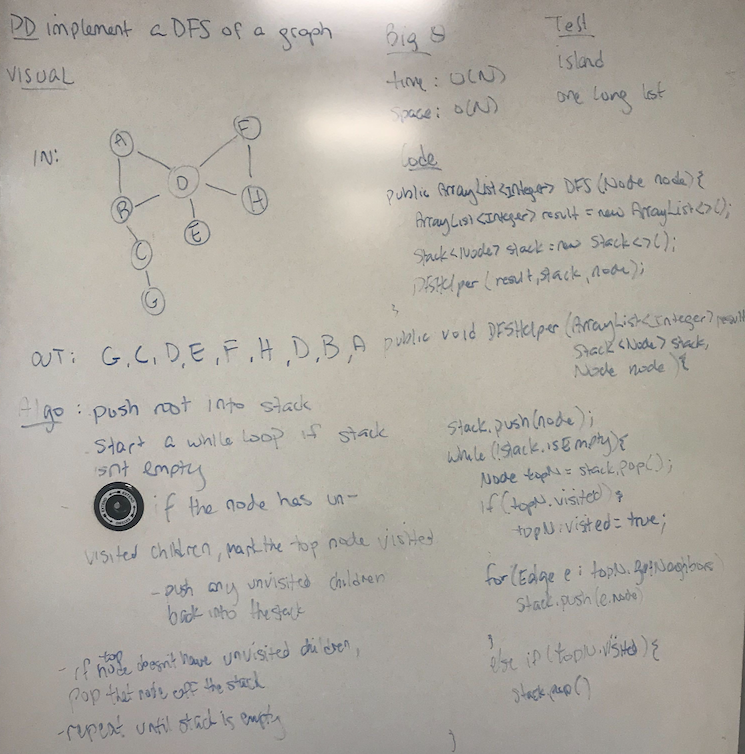 PD implement a DFS of a graph
VISUAL
IN:
A
F
D
B
H
E
C
G
OUT: G, C, D, E, F, H, D, B, A
Algo: push root into stack
Start a while loop if stack
isnt empty
if the node has un-
visited children, mark the top node visited
- push any unvisited children
back into the stack
- if top node doesn't have unvisited children,
pop that node off the stack
- repeat until stack is empty
Big O
time: O(N)
Space: O(N)
Test
island
one long list
Code
public ArrayList<Integer> DFS (Node node){
ArrayList<Integer> result = new ArrayList<>();
Stack<Node> stack = new Stack<>();
DFSHelper (result, stack, node);
}
public void DFSHelper (ArrayList<Integer> result
Stack<Node> stack,
Node node){
Stack.push(node);
while (!stack.isEmpty){
Node topN = stack.pop();
if (topN.visited){
topN.visted = true;
for (Edge e : topN.getNeighbors)
Stack.push(e.node)
}
else if (topN.visited){
stack.pop()
}